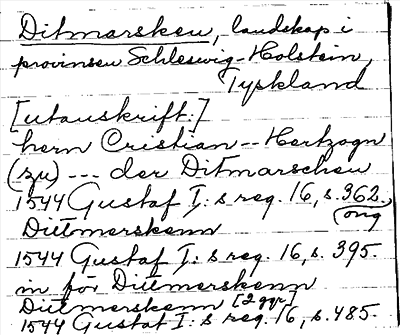 Ditmarsken, landskap i
provinsen Schleswig-Holstein,
Tyskland
[utanskrift:]
hern Cristian -- Hertzogn
(zu) --- der Ditmarschen
1544 Gustaf I:s reg. 16, s. 362,
orig
Dittmerskenn
1544 Gustaf I:s reg. 16, s. 395.
in för Dittmerskenn
Dittmerskenn [2 ggr]
1544 Gustaf I:s reg. 16, s. 485.